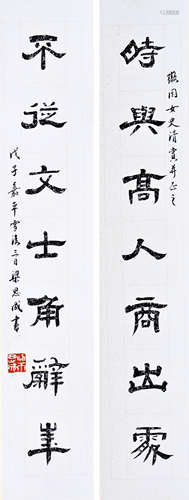 時與高人商出處
照闰女史清賞并正之
不從文士角辭華
戊子嘉平雪後三日梁思成書